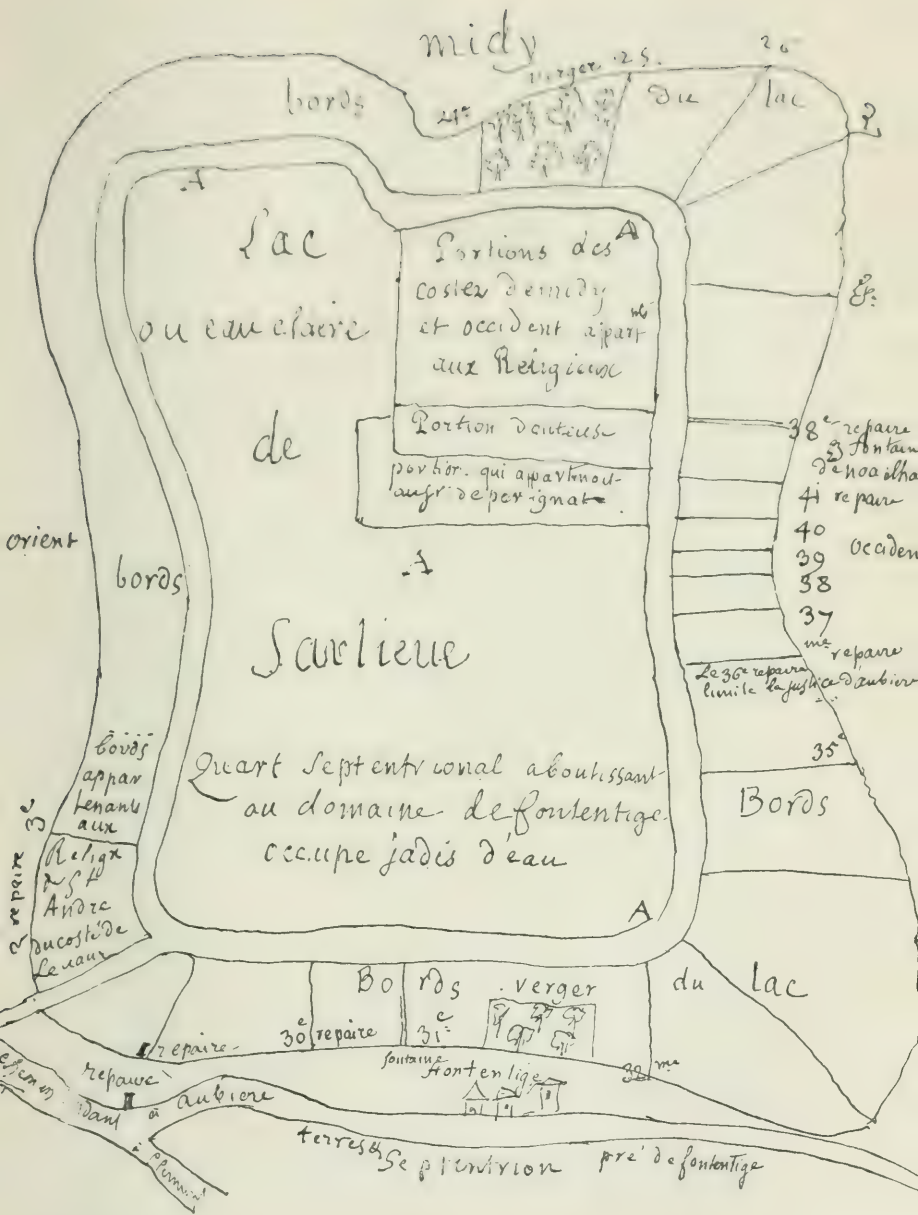 midy
verger 25.
26
bords
24e
du
lac
A
Lac
ou eau claire
de
Sarlieue
A
Portions des
costez demidy
et occident appartnts
aux Religieux
Portion
portion qui appartenoit
au sr de perignat
A
orient
bords
38e repaire
fontaine
de noailha
41 repaire
40
39
occident
38
37
me repaire
Le 36e repaire
limite la justice d'aubiere
35e
Bords
bords
appar
tenants
aux
Religx
de St
André
du costé de
2 repaire 3e
Quart Septentrional aboutissant
au domaine de fontentige
occupe jadis d'eau
A
Bo rds
verger
du lac
30e repaire
31e
32me
I repaire
fontaine
Fontentige
repaire
II
chemin
dant à aubiere
chemin
terres &
Septentrion
pré de fontentige